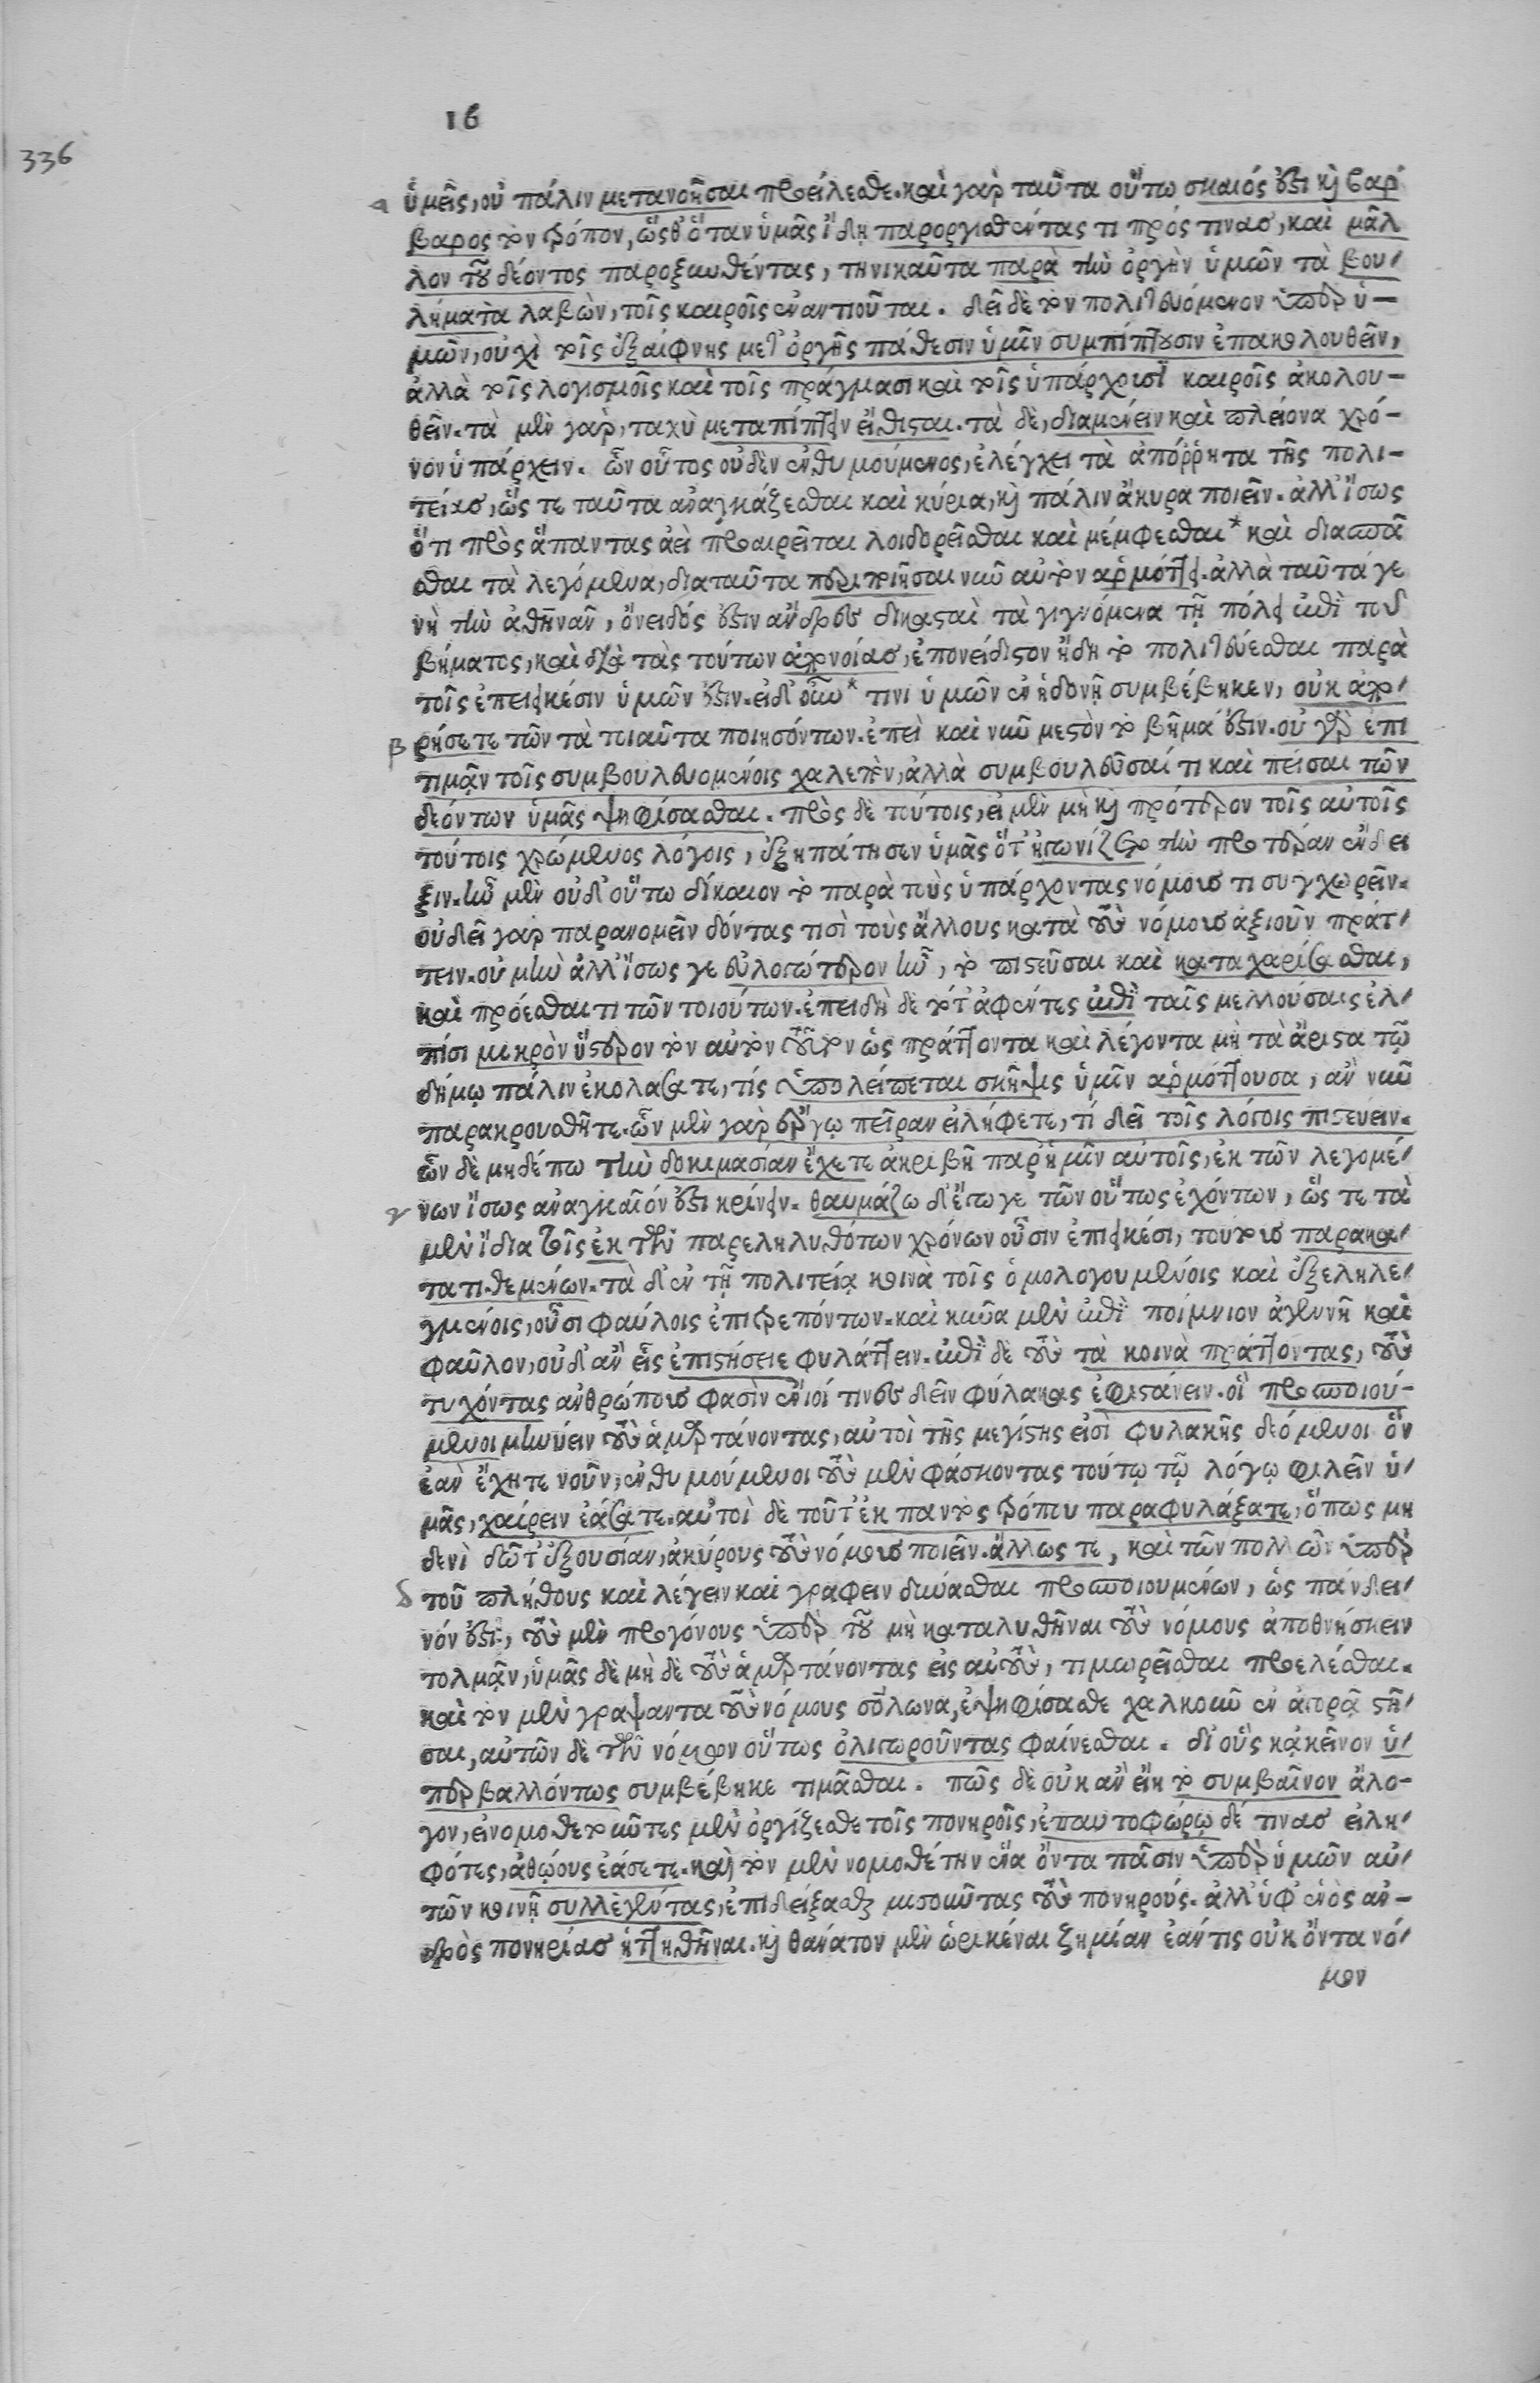 16
336
α ὑμεῖς, οὐ πάλιν μετανοῆσαι προείλεσθε. καὶ γὰρ ταῦτα οὕτω σκαιός ἐστι καὶ βάρ-
βαρος τὸν τρόπον, ὥσθ' ὅταν ὑμᾶς ἴδῃ παροργισθέντας τι πρός τινας, καὶ μᾶλ-
λον τοῦ δέοντος παροξυνθέντας, τηνικαῦτα παρὰ τὴν ὀργὴν ὑμῶν τὰ βου-
λήματα λαβὼν, τοῖς καιροῖς ἐναντιοῦται. δεῖ δὲ τὸν πολιτευόμενον ὑπὲρ ὑ-
μῶν, οὐχὶ τοῖς ἐξαίφνης μετ' ὀργῆς πάθεσιν ὑμῖν συμπίπτουσιν ἐπακολουθεῖν,
ἀλλὰ τοῖς λογισμοῖς καὶ τοῖς πράγμασι καὶ τοῖς ὑπάρχουσι καιροῖς ἀκολου-
θεῖν. τὰ μὲν γὰρ, ταχὺ μεταπίπτειν εἴθισται. τὰ δὲ, διαμένειν καὶ πλείονα χρό-
νον ὑπάρχειν. ὧν οὗτος οὐδὲν ἐνθυμούμενος, ἐλέγχει τὰ ἀπόῤῥητα τῆς πολι-
τείας, ὥστε ταῦτα ἀναγκάζεσθαι καὶ κύρια, καὶ πάλιν ἄκυρα ποιεῖν. ἀλλ' ἴσως
ὅτι πρὸς ἅπαντας ἀεὶ προαιρεῖται λοιδορεῖσθαι καὶ μέμφεσθαι* καὶ διασπᾶ
σθαι τὰ λεγόμενα, διαταῦτα περιποιῆσαι νῦν αὐτὸν ἁρμόττει. ἀλλὰ ταῦτά γε
νὴ τὴν ἀθηνᾶν, ὄνειδός ἐστιν ἄνδρες δικασταὶ τὰ γιγνόμενα τῇ πόλει ἐπὶ τοῦ
βήματος, καὶ διὰ τὰς τούτων ἀπονοίας, ἐπονείδιστον ἤδη τὸ πολιτεύεσθαι παρὰ
τοῖς ἐπιεικέσιν ὑμῶν ἐστιν. εἰ δ' οὖν* τινι ὑμῶν ἐν ἡδονῇ συμβέβηκεν, οὐκ ἀπο-
β ρήσετε τῶν τὰ τοιαῦτα ποιησόντων. ἐπεὶ καὶ νῦν μεστὸν τὸ βῆμα ἐστιν. οὐ γὰρ ἐπι
τιμᾷν τοῖς συμβουλευομένοις χαλεπὸν, ἀλλὰ συμβουλεῦσαί τι καὶ πείσαι τῶν
δεόντων ὑμᾶς ψηφίσασθαι. πρὸς δὲ τούτοις, εἰ μὲν μὴ καὶ πρότερον τοῖς αὐτοῖς
τούτοις χρώμενος λόγοις, ἐξηπάτησεν ὑμᾶς ὅτ' ἠγωνίζετο τὴν προτέραν ἔνδει
ξιν. ἦν μὲν οὐδ' οὕτω δίκαιον τὸ παρὰ τοὺς ὑπάρχοντας νόμους τι συγχωρεῖν.
οὐ δεῖ γὰρ παρανομεῖν δόντας τισὶ τοὺς ἄλλους κατὰ τοὺς νόμους ἀξιοῦν πράτ-
τειν. οὐ μὴν ἀλλ' ἴσως γε εὐλογώτερον ἦν, τὸ πιστεῦσαι καὶ καταχαρίσασθαι,
καὶ πρόεσθαι τι τῶν τοιούτων. ἐπειδὴ δὲ τότ' ἀφέντες ἐπὶ ταῖς μελλούσαις ἐλ-
πίσι μικρὸν ὕστερον τὸν αὐτὸν τοῦτον ὡς πράττοντα καὶ λέγοντα μὴ τὰ ἄριστα τῷ
δήμῳ πάλιν ἐκολάσατε, τίς ὑπολείπεται σκῆψις ὑμῖν ἁρμόττουσα, ἂν νῦν
παρακρουσθῆτε. ὧν μὲν γὰρ ἔργῳ πεῖραν εἰλήφετε, τί δεῖ τοῖς λόγοις πιστεύειν.
ὧν δὲ μηδέπω τὴν δοκιμασίαν ἔχετε ἀκριβῆ παρ' ἡμῖν αὐτοῖς, ἐκ τῶν λεγομέ-
γ νων ἴσως ἀναγκαῖόν ἐστι κρίνειν. θαυμάζω δ' ἔγωγε τῶν οὕτως ἐχόντων, ὥστε τὰ
μὲν ἴδια τοῖς ἐκ τῶν παρεληλυθότων χρόνων οὖσιν ἐπιεικέσι, τούτοις παρακα-
τατιθεμένων. τὰ δ' ἐν τῇ πολιτείᾳ κοινὰ τοῖς ὁμολογουμένοις καὶ ἐξεληλε-
γμένοις, οὖσι φαύλοις ἐπιτρεπόντων. καὶ κύνα μὲν ἐπὶ ποίμνιον ἀγεννῆ καὶ
φαῦλον, οὐδ' ἂν εἷς ἐπιστήσειε φυλάττειν. ἐπὶ δὲ τοὺς τὰ κοινὰ πράττοντας, τοὺς
τυχόντας ἀνθρώπους φασὶν ἔνιοί τινες δεῖν φύλακας ἐφιστάνειν. οἳ προσποιού-
μενοι μηνύειν τοὺς ἁμαρτάνοντας, αὐτοὶ τῆς μεγίστης εἰσὶ φυλακῆς δεόμενοι ὃν
ἐὰν ἔχητε νοῦν, ἐνθυμούμενοι τοὺς μὲν φάσκοντας τούτῳ τῷ λόγῳ φιλεῖν ὑ-
μᾶς, χαίρειν ἐάσατε. αὐτοὶ δὲ τοῦτ' ἐκ παντὸς τρόπου παραφυλάξατε, ὅπως μη
δενὶ δῶτ' ἐξουσίαν, ἀκύρους τοὺς νόμους ποιεῖν. ἄλλως τε, καὶ τῶν πολλῶν ὑπὲρ
δ τοῦ πλήθους καὶ λέγειν καὶ γράφειν δύνασθαι προσποιουμένων, ὡς πάνδει-
νόν ἐστι, τοὺς μὲν προγόνους ὑπὲρ τοῦ μὴ καταλυθῆναι τοὺς νόμους ἀποθνήσκειν
τολμᾷν, ὑμᾶς δὲ μὴ δὲ τοὺς ἁμαρτάνοντας εἰς αὐτοὺς, τιμωρεῖσθαι προελέσθαι.
καὶ τὸν μὲν γράψαντα τοὺς νόμους σόλωνα, ἐψηφίσασθε χαλκοῦν ἐν ἀγορᾷ στῆ-
σαι, αὐτῶν δὲ τῶν νόμων οὕτως ὀλιγωροῦντας φαίνεσθαι. δι' οὓς κἀκεῖνον ὑ-
περβαλλόντως συμβέβηκε τιμᾶσθαι. πῶς δὲ οὐκ ἂν εἴη τὸ συμβαῖνον ἄλο-
γον, εἰ νομοθετοῦντες μὲν ὀργίζεσθε τοῖς πονηροῖς, ἐπαυτοφώρῳ δέ τινας εἰλη-
φότες, ἀθῴους ἐάσετε. καὶ τὸν μὲν νομοθέτην ἕνα ὄντα πᾶσιν ὑπὲρ ὑμῶν αὐ-
τῶν κοινῇ συλλεγέντας, ἐπιδείξασθαι μισοῦντας τοὺς πονηρούς. ἀλλ' ὑφ' ἑνὸς ἀν-
δρὸς πονηρίας ἡττηθῆναι. καὶ θανάτον μὲν ὡρικέναι ζημίαν ἐάν τις οὐκ ὄντα νό-
μον